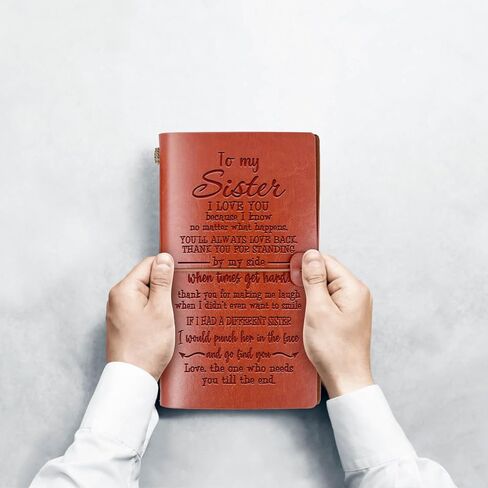 To my
Sister
I LOVE YOU
because I know
no matter what happens,
YOU'LL ALWAYS LOVE BACK.
THANK YOU FOR STANDING
by my side
when times get hard.
thank you for making me laugh
when I didn't even want to smile
IF I HAD A DIFFERENT SISTER
I would punch her in the face
and go find you
Love, the one who needs
you till the end.